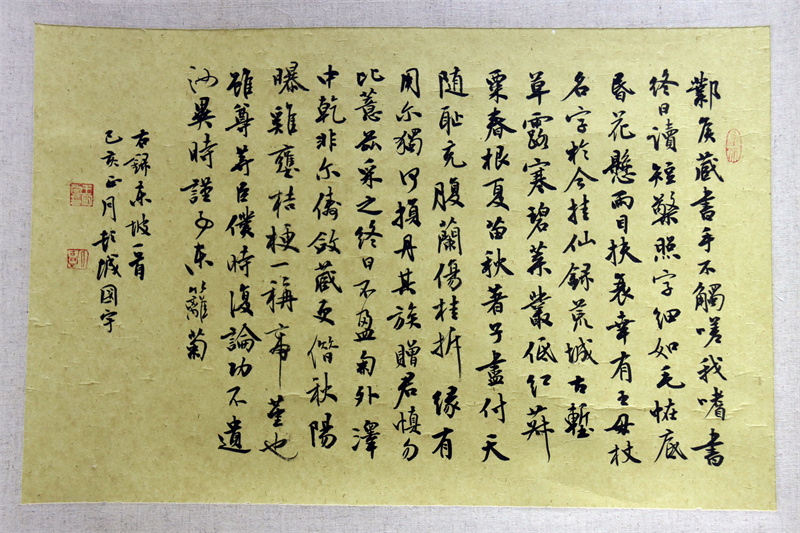 鄴侯藏書手不觸嗟我嗜書
終日讀短檠照字細如毛怪底
昏花懸兩目扶衰幸有王母杖
名字於今挂仙錄荒城古塹
草露寒碧葉叢低紅菽
粟春根夏苗秋著子盡付天
隨恥充腹蘭傷桂折緣有
用尔獨何損丹其族贈君慎勿
比薏苡采之終日不盈匊外澤
中乾非尔儔斂藏更借秋陽
曝雞壅桔梗一稱帝堇也
雖尊等臣僕時復論功不遺
汝異時謹事東籬菊
右錄東坡一首
己亥正月 國宇